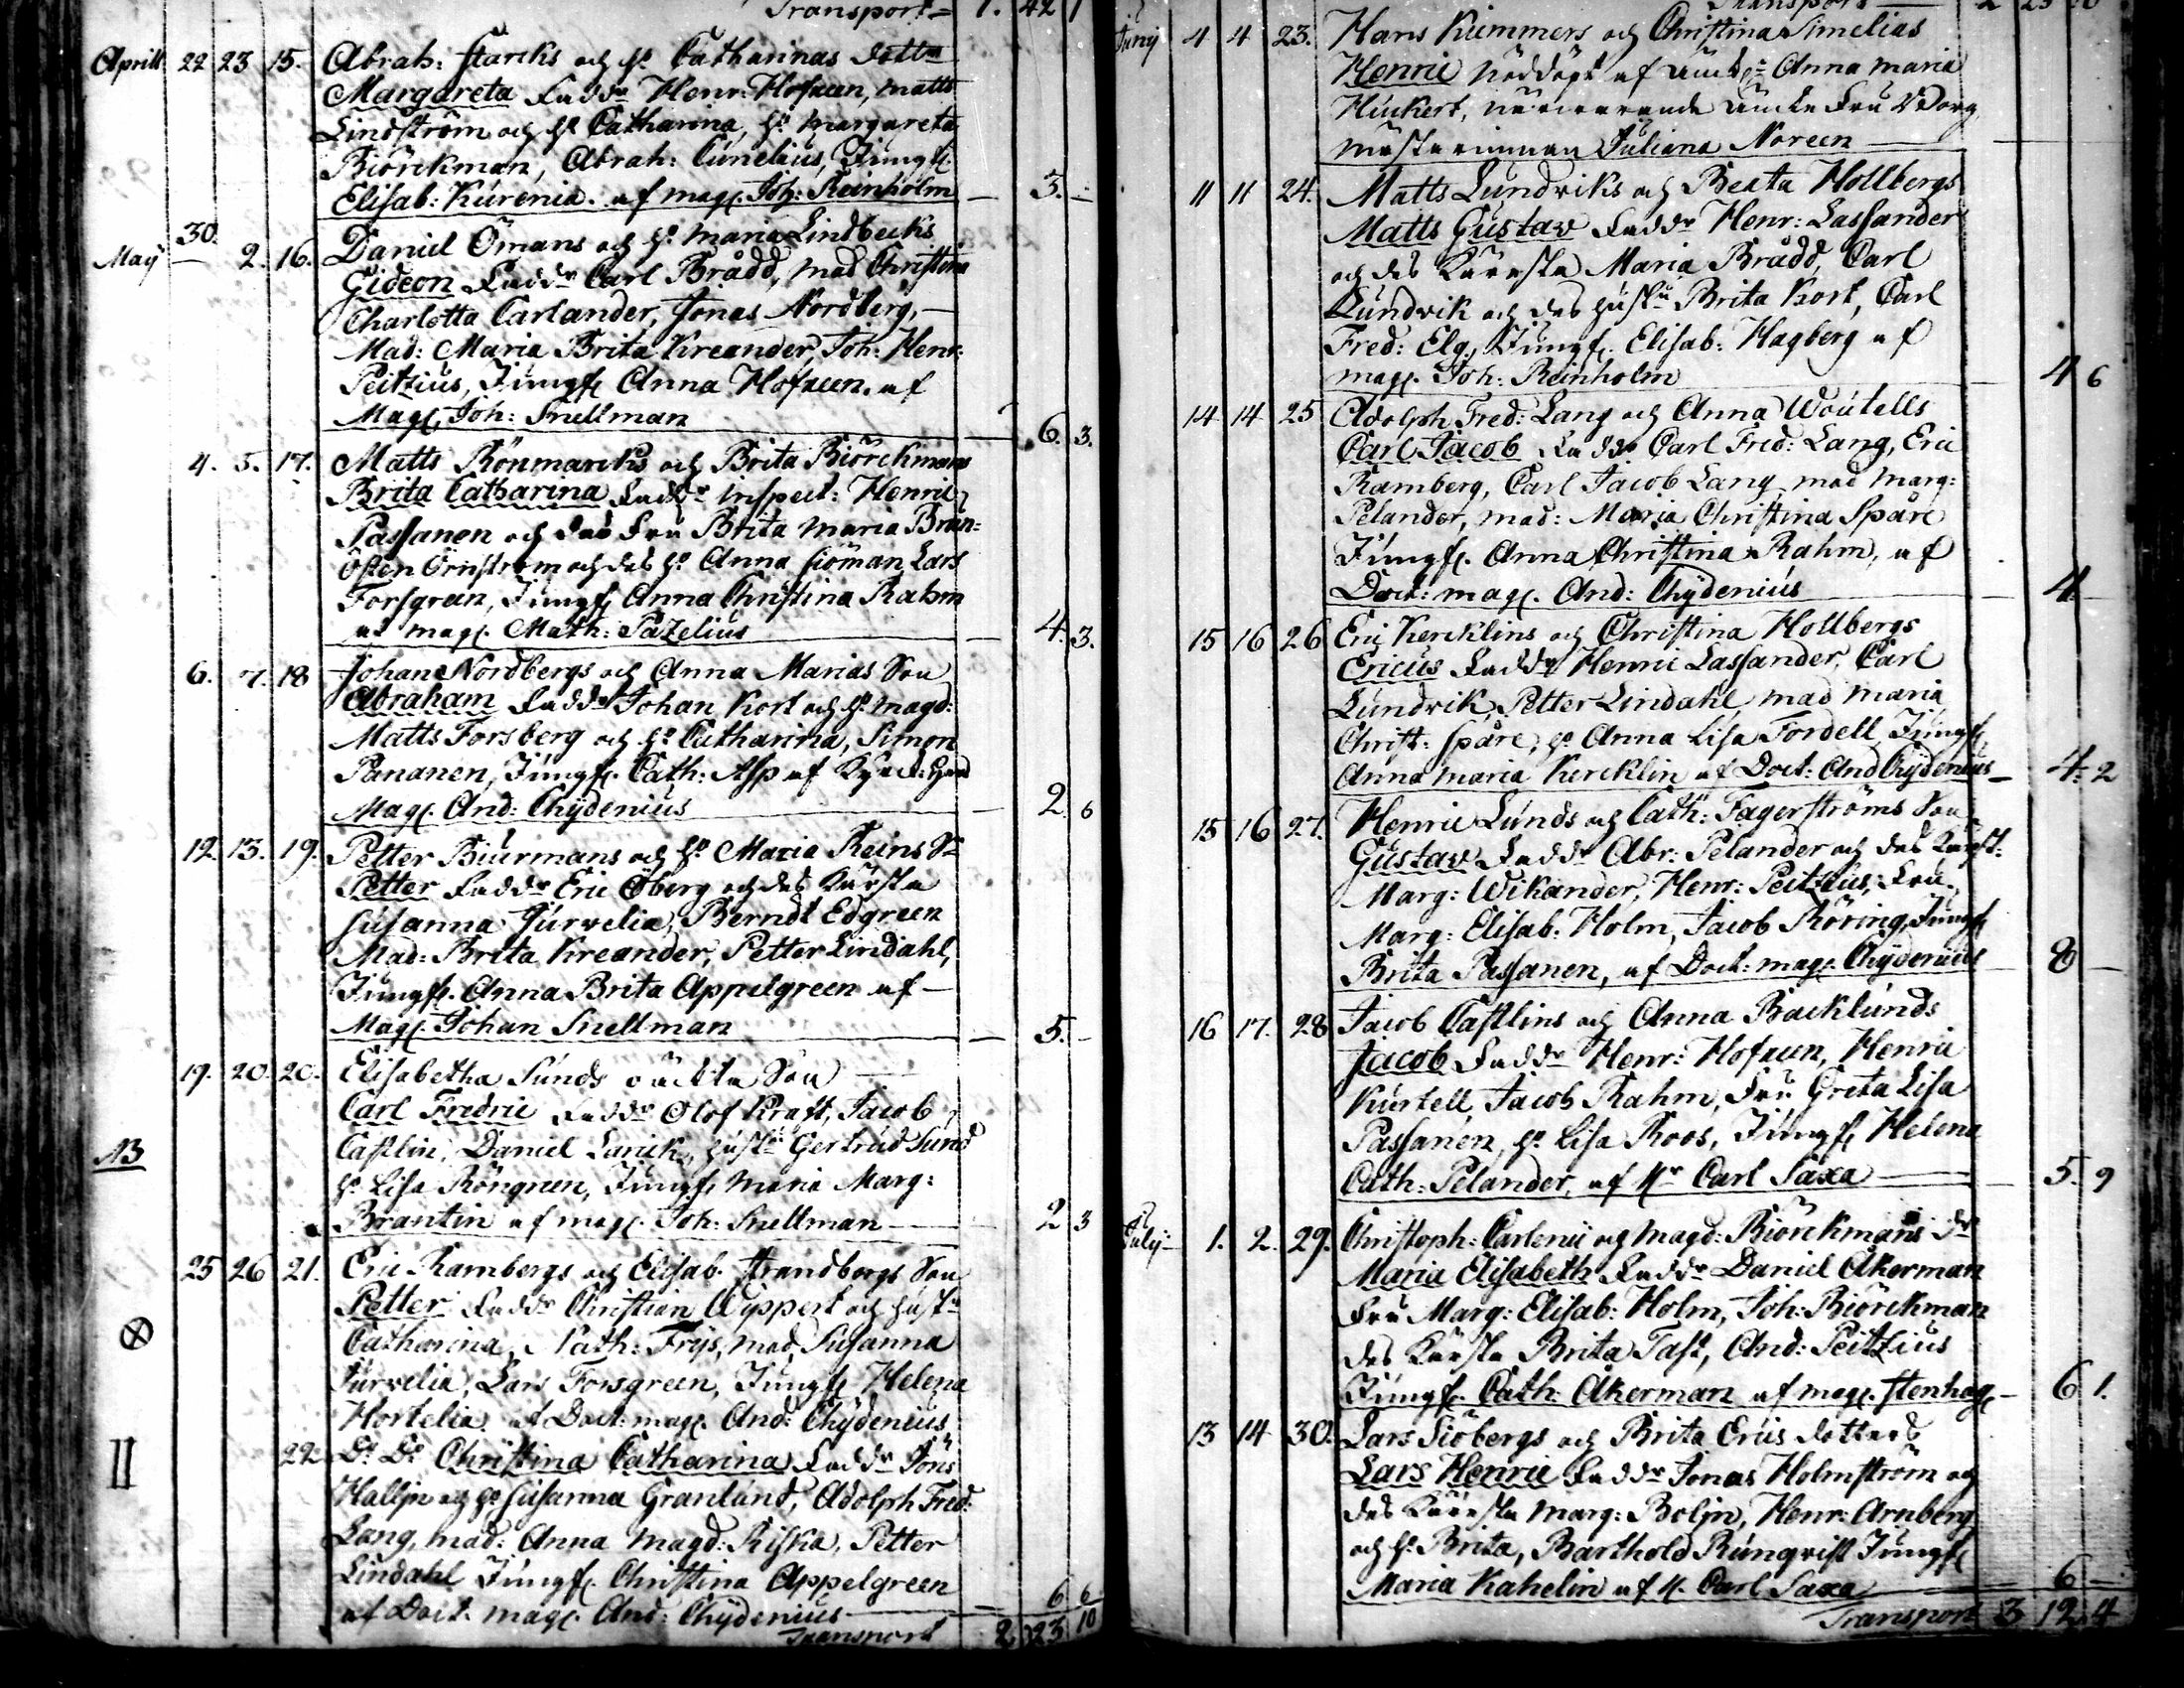 Transport= 1. 42 1
Aprill 22 23 15. Abrah: Starcks och h: Catharinas dotter
Margareta Faddr Henr: Hofreen, Matts
Lindström och h: Catharina, h: Margareta
Biörckman, Abrah: Cunelius, Jungf.
Elisab: Kurenia. af mag. Joh: Reinholm — 3. -
May 30. 2. 16. Daniel Ömans och h: Maria Lindbecks
Gideon Faddr Carl Brådd, Mad Christina
Charlotta Carlander, Jonas Nordberg,
Mad: Maria Brita Kreander, Joh: Henr:
Peitzius, Jungf Anna Hofreen. af
Mag. Joh: Snellman — 6. 3.
4. 5. 17. Matts Rönmarcks och Brita Biörckmans
Brita Catharina Faddr inspect: Henric
Passanen och des Fru Brita Maria Brun=
Östen Örnström och des h: Anna Siöman, Lars
Forsgreen, Jungf Anna Christina Rahm
af mag. Math: Pazelius — 4. 3.
6. 7. 18 Johan Nordbergs och Anna Marias Son
Abraham Faddr Johan Kort och h: Magd:
Matts Forsberg och h: Catharina, Simon
Pananen, Jungf. Cath: Asp af
Mag. And: Chydenius — 2 6
12. 13. 19. Petter Biurmans och h: Maria Reins Sn
Petter Faddr Eric Öberg och des Kärsta
Susanna Jurvelia, Berndt Edgreen
Mad: Brita Kreander, Petter Lindahl,
Jungf. Anna Brita Appelgreen af —
Mag. Johan Snellman — 5. -
19. 20. 20. Elisabetha Sunds oäckta Son
Carl Fredric Faddr Olof Kraft, Jacob
NB Castlin, Daniel Larick, hustr Gertrud Sund
h: Lisa Röngreen, Jungf Maria Marg:
Brantin af mag. Joh: Snellman — 2 3
25 26 21. Eric Rambergs och Elisab. Strandbergs Son
Petter Faddr Christian Wippert och hustr
Catharina, Nath: Frijs, mad Susanna
Jurvelia, Lars Forsgreen, Jungf Helena
Hortelia. af Doct: mag. And: Chydenius
22 Dº Dº Christina Catharina Faddr Jöns
Halljn och h: Susanna Granlund, Adolph Fred:
Lang, mad: Anna Magd: Riska, Petter
Lindahl Jungf. Christina Appelgreen
af Doct. mag. And: Chydenius — 6 6
Transport 2 23 10
Transport — 2 23 10
Juny 4 4 23. Hans Kummers och Christina Simelias
Henric nöddöpt af Anna Maria
Huckert, närvarande Enke Fru Borg
mästarinnan Juliana Noreen —
11 11 24. Matts Lundviks och Beata Hollbergs
Matts Gustav Faddr Henr: Lassander
och des Käresta Maria Brådd, Carl
Lundvik och des hustr Brita Kort, Carl
Fred: Elg, Jungf. Elisab: Hagberg af
mag. Joh: Reinholm — 4 6
14 14 25 Adolph Fred: Lang och Anna Woutells
Carl Jacob Faddr Carl Fred: Lang, Eric
Ramberg, Carl Jacob Lang, mad Marg:
Pelander, mad: Maria Christina Spåre
Jungf. Anna Christina Rahm, af
Doct: mag. And: Chydenius — 4
15 16 26 Eric Kercklins och Christina Hollbergs
Ericus Faddr Henric Lassander, Carl
Lundvik, Petter Lindahl mad Maria
Christ: Spåre, h: Anna Lisa Fordell Jungf
Anna Maria Kercklin af Doct: And Chydenius — 4: 2
15 16 27. Henric Lunds och Cath: Fagerströms Son
Gustav Faddr Abr: Pelander och des Kärst:
Marg: Wikander, Henr: Peitzius, Fru
Marg: Elisab: Holm, Jacob Röring, Jungf
Brita Passanen, af Doct: mag: Chydenius — 8 —
16 17. 28 Jacob Castlins och Anna Backlunds
Jacob Faddr Henr: Hofreen, Henric
Kurtell, Jacob Rahm, Fru Greta Lisa
Passanen, h: Lisa Roos, Jungf Helena
Cath: Pelander, af Hr Carl Saxa — 5. 9
July 1. 2. 29. Christoph: Carlenii och Magd: Biörckmans dr
Maria Elisabeth Faddr Daniel Åkerman
Fru Marg: Elisab: Holm, Joh: Biörckman
des Kärsta Brita Fast, And: Peitzius
Jungf. Cath: Åkerman af mag. Stenhag — 6 1.
13 14 30. Lars Siöbergs och Brita Ericsdotters
Lars Henric Faddr Jonas Holmström och
des Käresta Marg: Boljn, Henr: Arnberg
och h: Brita, Barthold Runqvist Jungf
Maria Kahelin af H. Carl Saxa — 6 —
Transport 3 12 4